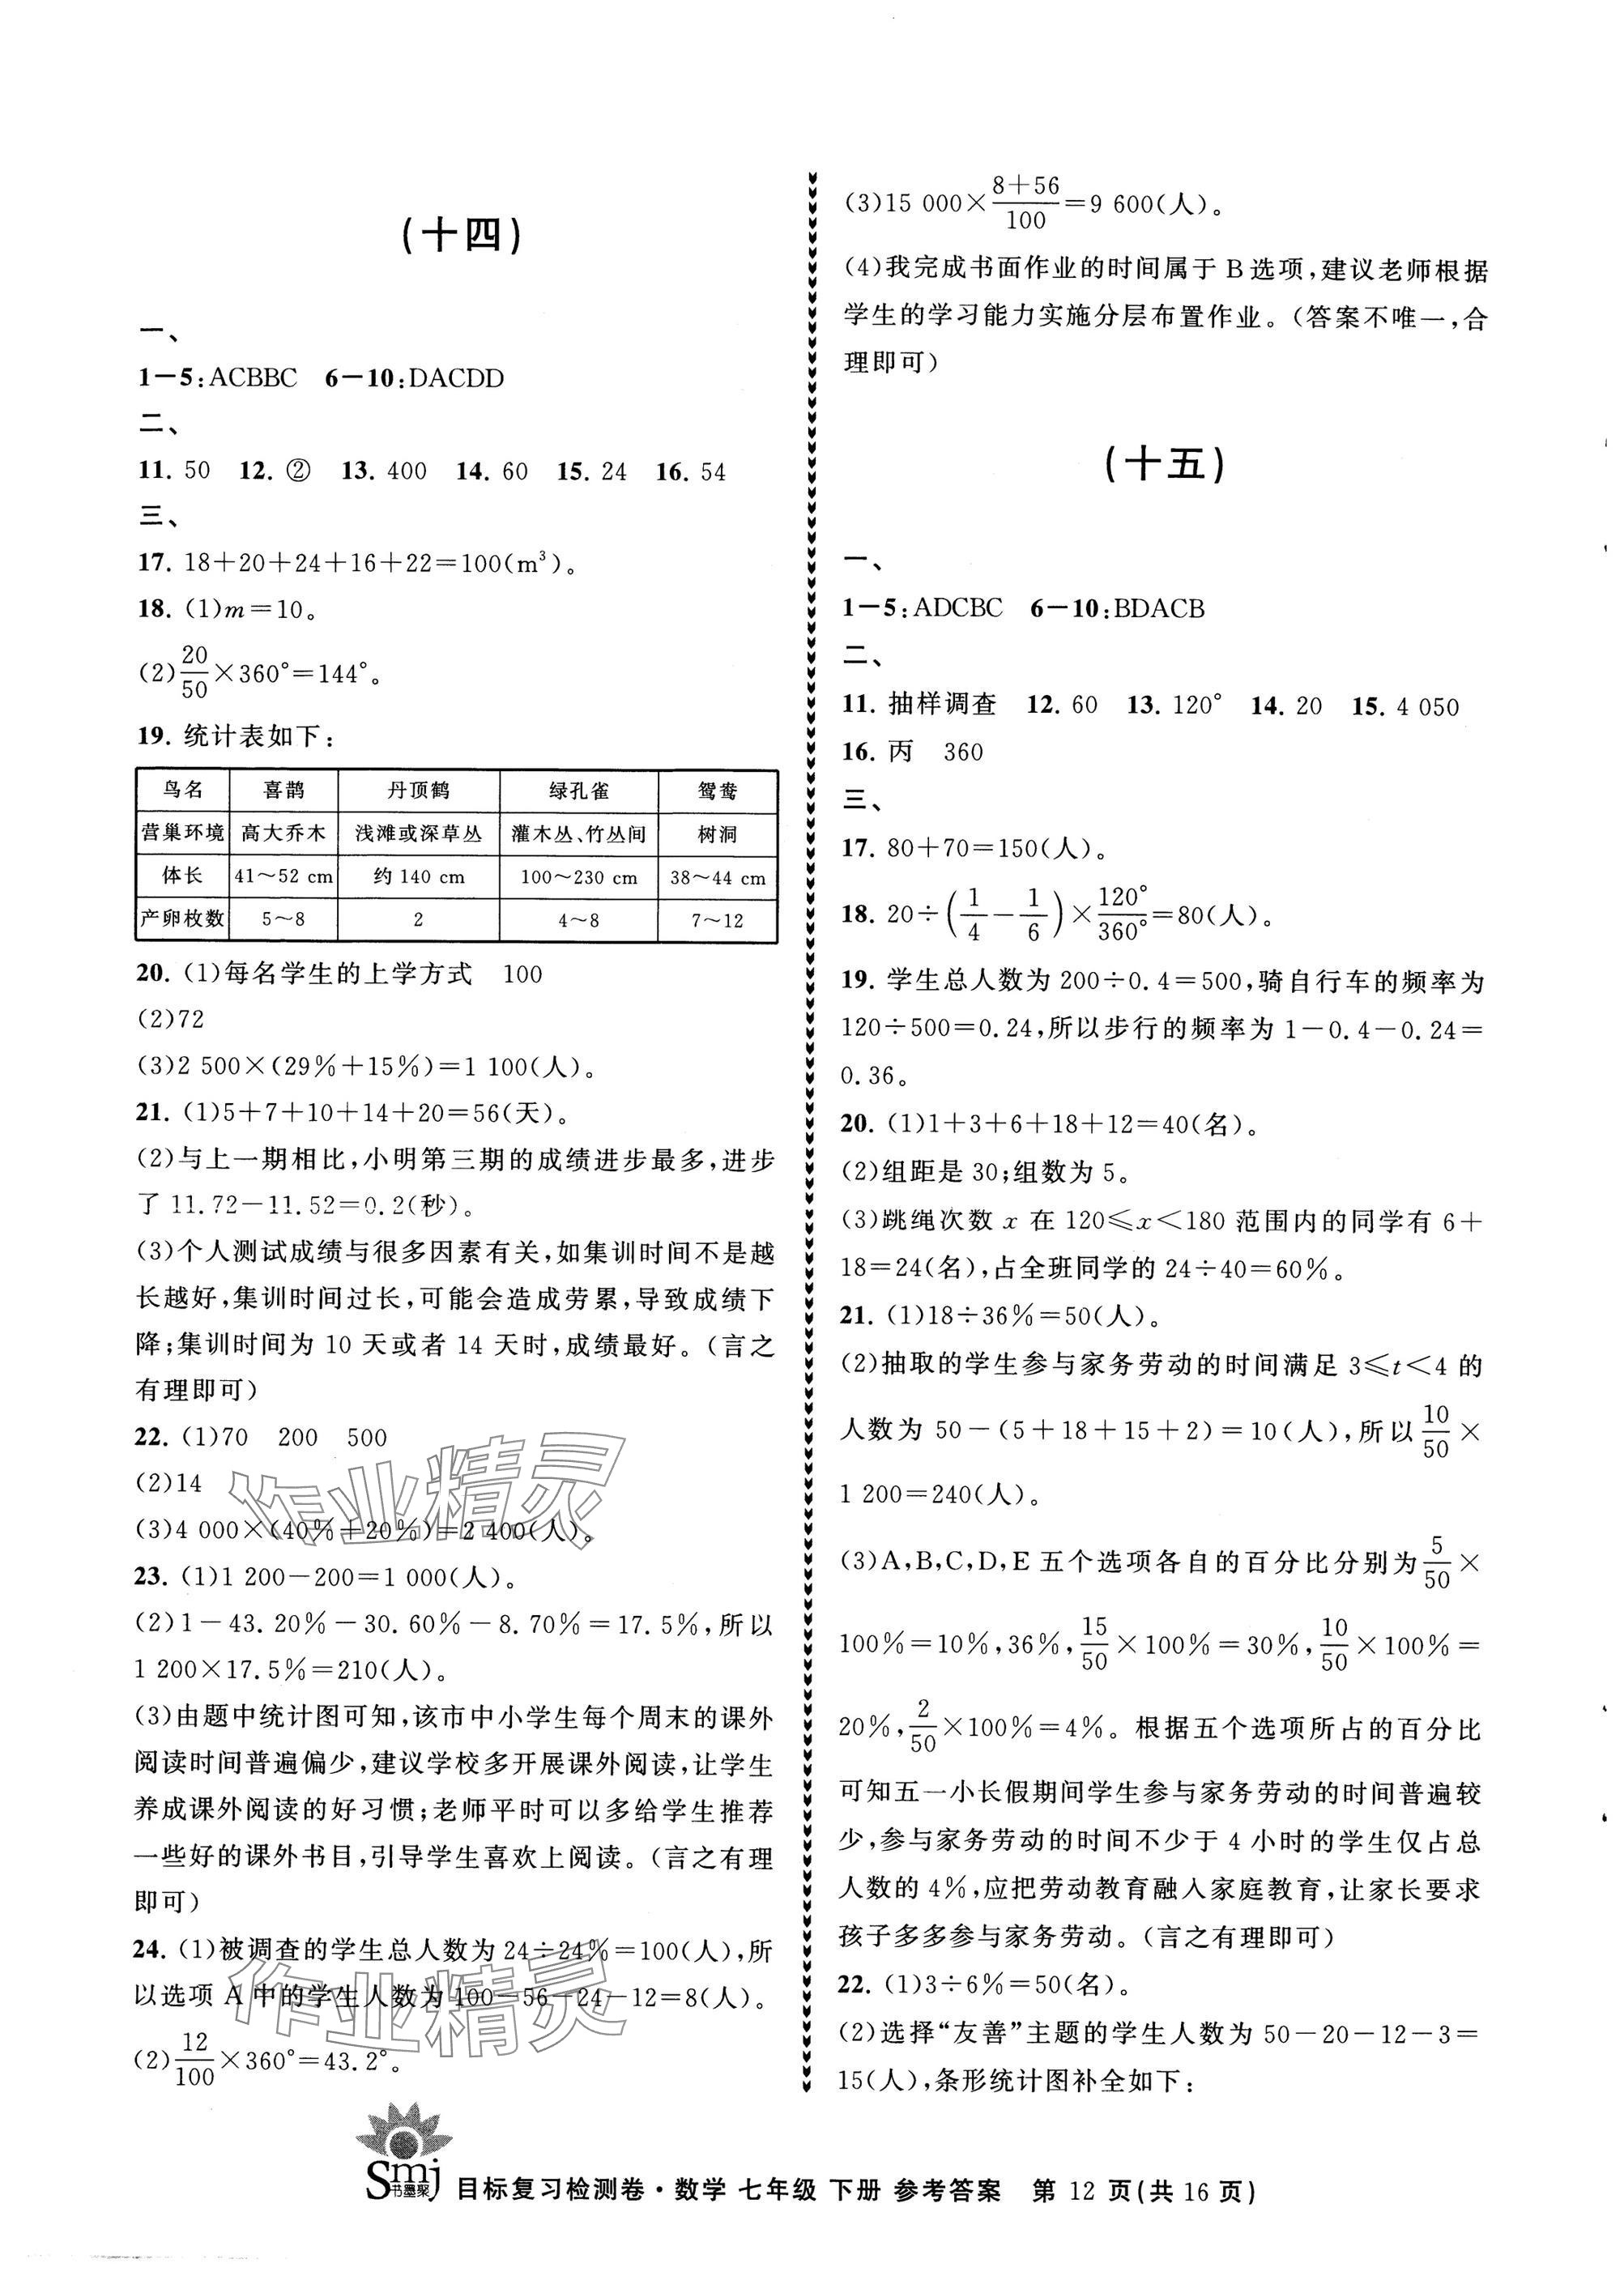 (十四)
一、
1—5:ACBBC 6—10:DACDD
二、
11. 50 12. ② 13. 400 14. 60 15. 24 16. 54
三、
17. 18+20+24+16+22=100(m³)。
18. (1)m=10。
(2)20/50×360°=144°。
19. 统计表如下:
鸟名 喜鹊 丹顶鹤 绿孔雀 鸳鸯
营巢环境 高大乔木 浅滩或深草丛 灌木丛、竹丛间 树洞
体长 41～52 cm 约 140 cm 100～230 cm 38～44 cm
产卵枚数 5～8 2 4～8 7～12
20. (1)每名学生的上学方式 100
(2)72
(3)2 500×(29%+15%)=1 100(人)。
21. (1)5+7+10+14+20=56(天)。
(2)与上一期相比,小明第三期的成绩进步最多,进步
了 11.72-11.52=0.2(秒)。
(3)个人测试成绩与很多因素有关,如集训时间不是越
长越好,集训时间过长,可能会造成劳累,导致成绩下
降;集训时间为 10 天或者 14 天时,成绩最好。(言之
有理即可)
22. (1)70 200 500
(2)14
(3)4 000×(40%+20%)=2 400(人)。
23. (1)1 200-200=1 000(人)。
(2)1-43.20%-30.60%-8.70%=17.5%,所以
1 200×17.5%=210(人)。
(3)由题中统计图可知,该市中小学生每个周末的课外
阅读时间普遍偏少,建议学校多开展课外阅读,让学生
养成课外阅读的好习惯;老师平时可以多给学生推荐
一些好的课外书目,引导学生喜欢上阅读。(言之有理
即可)
24. (1)被调查的学生总人数为 24÷24%=100(人),所
以选项 A 中的学生人数为 100-56-24-12=8(人)。
(2)12/100×360°=43.2°。
(3)15 000×(8+56)/100=9 600(人)。
(4)我完成书面作业的时间属于 B 选项,建议老师根据
学生的学习能力实施分层布置作业。(答案不唯一,合
理即可)
(十五)
一、
1—5:ADCBC 6—10:BDACB
二、
11. 抽样调查 12. 60 13. 120° 14. 20 15. 4 050
16. 丙 360
三、
17. 80+70=150(人)。
18. 20÷(1/4-1/6)×120°/360°=80(人)。
19. 学生总人数为 200÷0.4=500,骑自行车的频率为
120÷500=0.24,所以步行的频率为 1-0.4-0.24=
0.36。
20. (1)1+3+6+18+12=40(名)。
(2)组距是 30;组数为 5。
(3)跳绳次数 x 在 120≤x<180 范围内的同学有 6+
18=24(名),占全班同学的 24÷40=60%。
21. (1)18÷36%=50(人)。
(2)抽取的学生参与家务劳动的时间满足 3≤t<4 的
人数为 50-(5+18+15+2)=10(人),所以10/50×
1 200=240(人)。
(3)A,B,C,D,E 五个选项各自的百分比分别为5/50×
100%=10%,36%,15/50×100%=30%,10/50×100%=
20%,2/50×100%=4%。根据五个选项所占的百分比
可知五一小长假期间学生参与家务劳动的时间普遍较
少,参与家务劳动的时间不少于 4 小时的学生仅占总
人数的 4%,应把劳动教育融入家庭教育,让家长要求
孩子多多参与家务劳动。(言之有理即可)
22. (1)3÷6%=50(名)。
(2)选择“友善”主题的学生人数为 50-20-12-3=
15(人),条形统计图补全如下:
作业精灵
作业精灵
Smj
书墨聚
目标复习检测卷·数学 七年级 下册 参考答案 第 12 页(共 16 页)